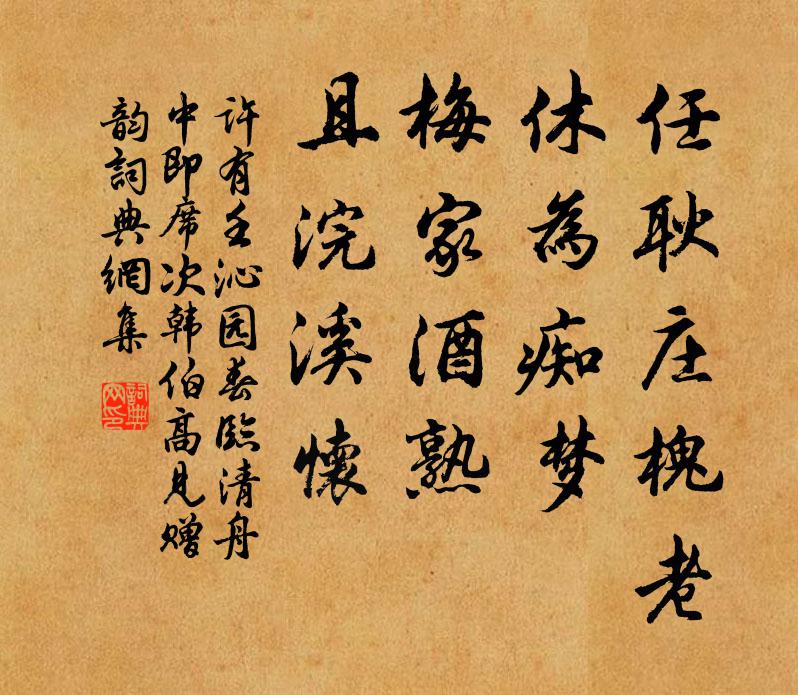 任耿庄槐老
休為痴梦
梅家酒熟
且浣溪懷
许有壬沁园春臨清舟
中即席次韩伯高見赠
韵詞典網集
詞典
网印